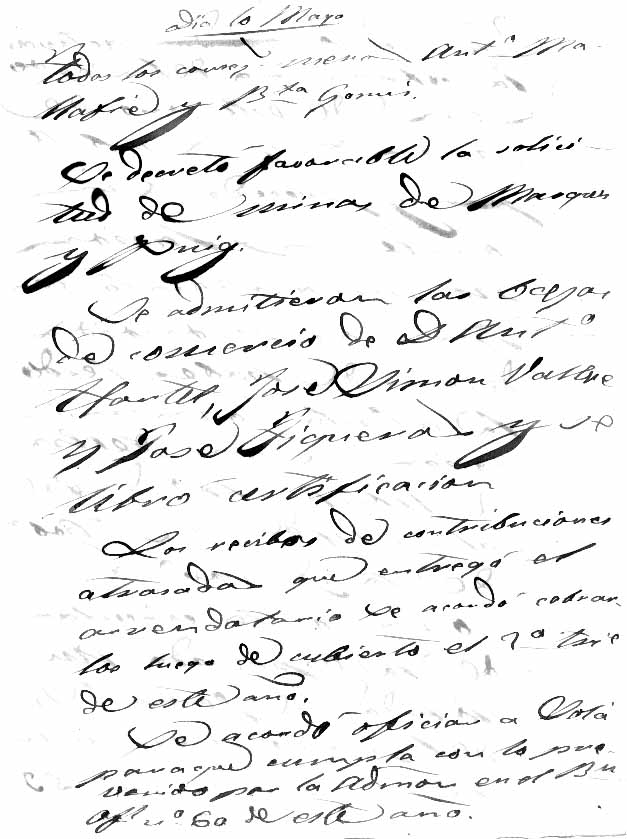 Dia 10 Mayo
Todos los conses menos Antº Ma-
y Bta Gomis.
Se decretó favorable la solici-
tud de minas de Masques
y Puig.
Se admitieron las bajas
de comercio de D Antº
José Simon Vallve
y José Figueras y se
libró certificacion
Los recibos de contribuciones
atrasadas que entregó el
arrendatario se acordó cobrar-
los luego de cubierto el 2º trie
de este año.
Se acordó oficiar a Solá
para que cumpla con lo pre-
venido por la Admon en el Bn
ofl nº 60 de este año.